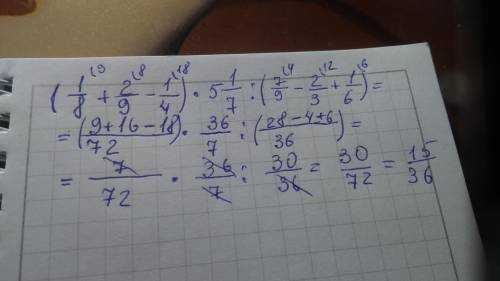 ( 1/8 \9 + 2/9 \8 - 1/4 \18 ) · 5 1/7 : ( 7/9 \4 - 2/3 \12 + 1/6 \6 ) =
= (9+16-18)/72 · 36/7 : (28-4+6)/36 =
= 7/72 · 36/7 : 30/36 = 30/72 = 15/36